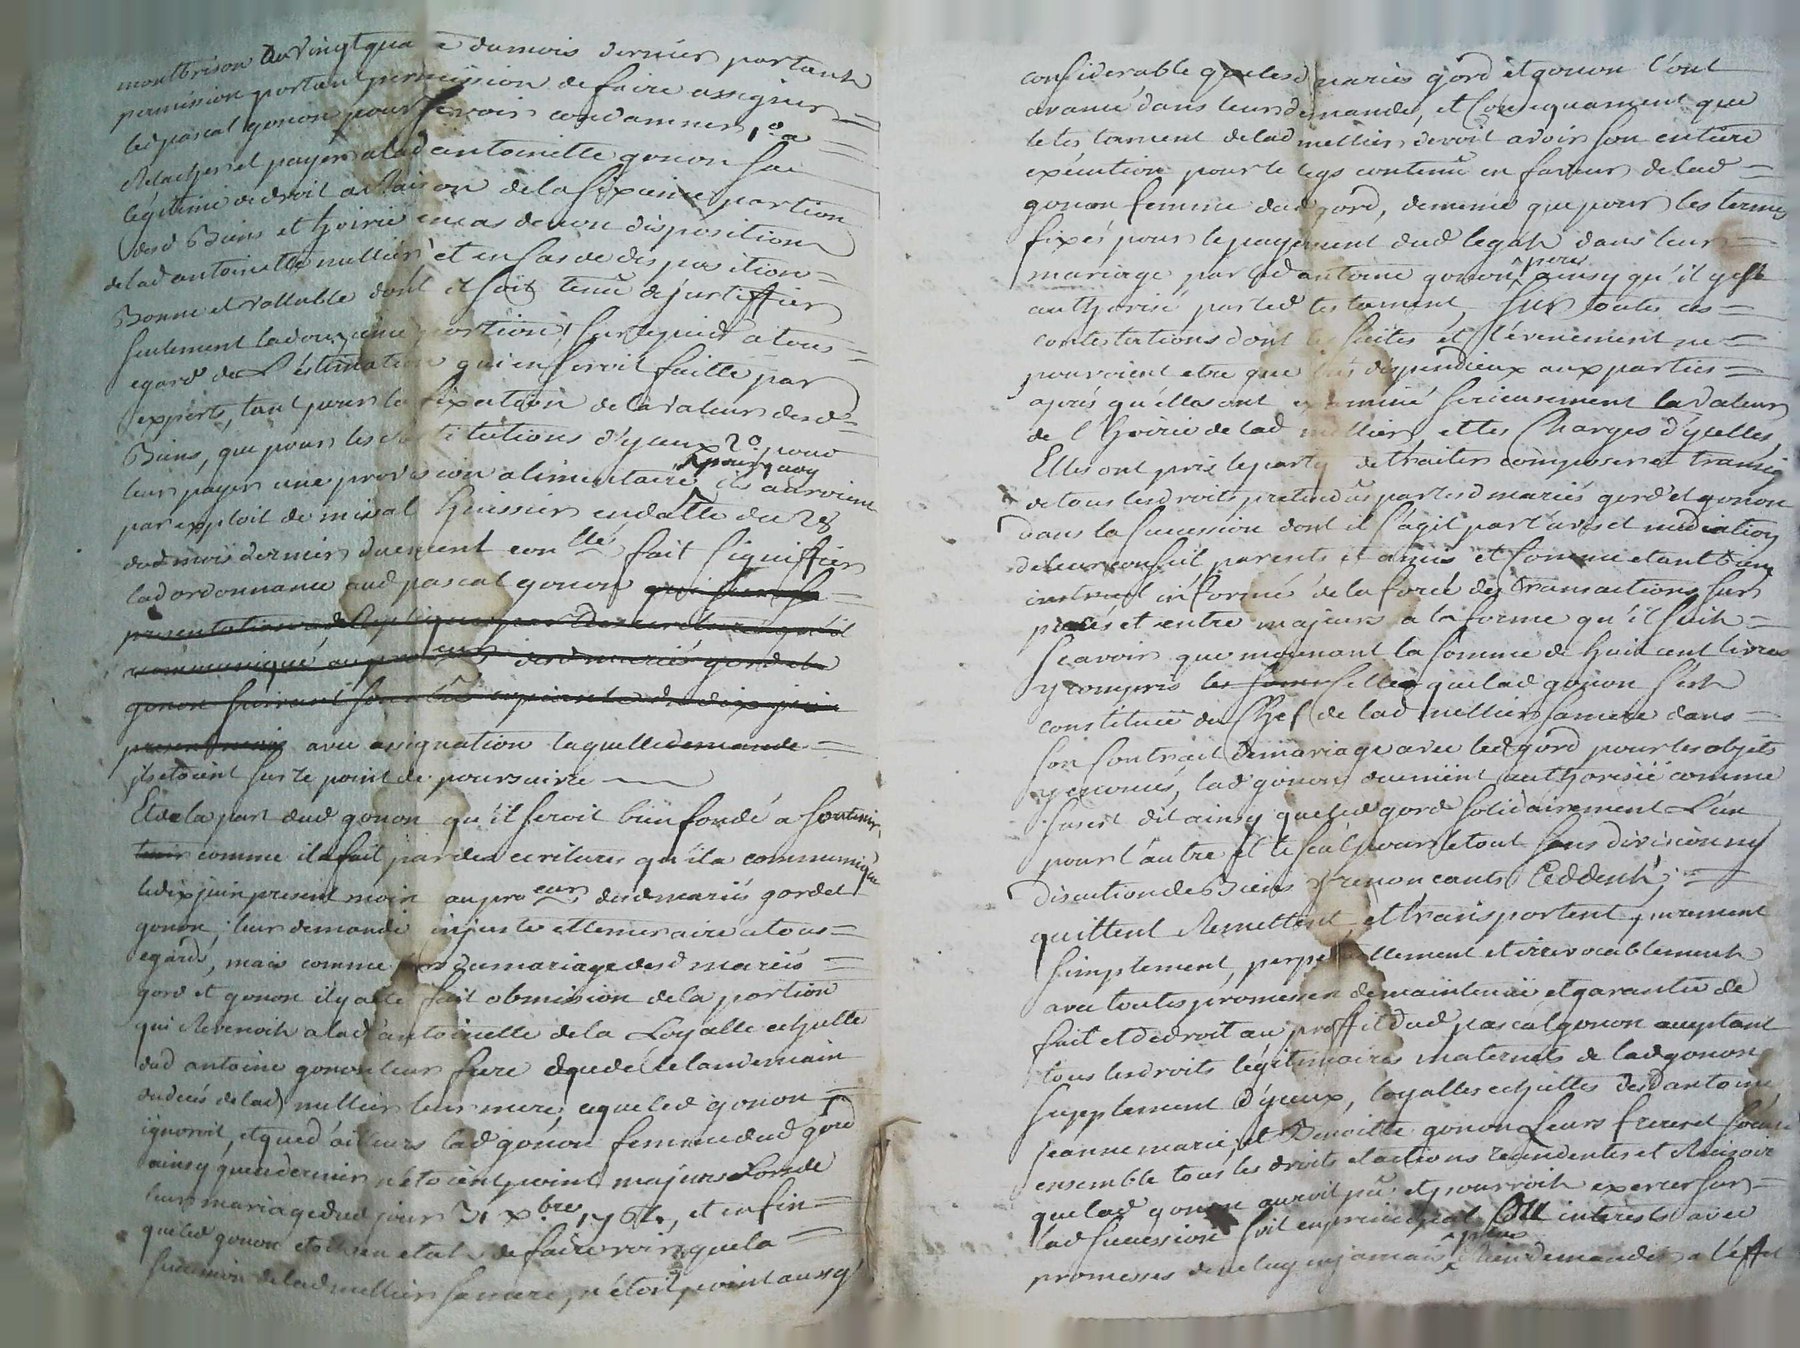 montbrison du vingtquatre dumois dernier portant
permission portant permission de faire assigner
led pascal gonon pour se voir condamner 1o a
Relacher et payer a lad antoinette gonon sa
légitime de droit a Raison de la sixaine portion
desd Biens et hoirie en cas de non disposition
de lad antoinette mellier et en cas de disposition
Bonne et vallable dont il soit tenu de justiffier
seulement la douzieme portion, sur le quid a tous
egard de L'estimation qui en seroit faitte par
experts, tant pour la fixation de la valeur desd
Biens, que pour les restitutions d'yceux 2o pour
leur payer une provision alimentaire, pourquoy ils auroient
par exploit de missal huissier en datte du 28
dud mois dernier duement conllé fait signiffier
lad ordonnance aud pascal gonon qui sur sa
presentation a de
communiqué au procureur desd mariés gord et
gonon suivant son du dix juin
present mois avec assignation laquelle demande
ils etoient sur le point de poursuivre
Et de la part dud gonon qu'il seroit bien fondé a soutenir
tenir comme il a fait par des ecritures qu'il a communiqué
le dix juin present mois au procur desd mariés gord et
gonon, leur demande injuste et temeraire a tous
egards, mais comme lors du mariage desd mariés
gord et gonon il y a eté fait obmission de la portion
qui Revenoit a lad antoinette de la Loyalle echutte
dud antoine gonon leur frere decedé le landemain
du decés de lad mellier leur mere, ce que led gonon
ignoroit, et que d'ailleurs lad gonon femme dud gord
ainsy que ce dernier n'etoient point majeurs Lors de
leur mariage dud jour 31 xbre 1764, et enfin
que led gonon etoit en etat de faire voir que la
succession de lad mellier sa mere, n'étoit point aussy
considerable que lesd mariés gord et gonon l'ont
avancé dans leur demande, et consequament que
le testament de lad mellier devoit avoir son entiere
exécution pour le legs contenu en faveur de lad
gonon femme dud gord, de meme que pour les termes
fixés pour le payement dud legah dans leur
mariage par led antoine gonon pere ainsy qu'il y est
authorisé par led testament, sur toutes ces
contestations dont les suites et l'évenement ne
pouvoient etre que tres dispendieux aux parties
aprés qu'elles ont examiné serieusement la valeur
de l'hoirie de lad mellier, et les Charges d'yuelles,
Elles ont pris le party de traiter composer et transig
de tous les droits pretendus par lesd mariés gord et gonon
dans la succession dont il s'agit par l'avis et mediation
de leur conseil parents et amis et comme etant bien
instruit informé de la force des transactions sur
procés et entre majeurs a la forme qu'il suit
scavoir que moienant la somme de huit cent livres
y compris les somm celles que lad gonon s'est
constituée du Chef de lad mellier sa mere dans
son contrait de mariage avec led gord pour les objets
y enoncés, lad gonon duement authorisée comme
sus est dit ainsy que led gord solidairement L'un
pour l'autre et le seul pour le tout sans division ny
discution de Biens y renoncants Ceddent,
quittent Remettent, et transportent purement
simplement, perpetuellement et irrevocablement
avec toutes promesses de maintenue et garantie de
fait et de droit au proffit dud pascal gonon acceptant
tous les droits légitimaires maternels de lad gonon
supplement d'yceux, loyalles echuttes desd antoine
jeanne marie, et Benoitte gonon Leurs freres et soeurs
ensemble tous les droits et actions rescindentes et Rescisoir
que lad gonon auroit pu et pourroit exercer sur
lad succession soit en principal ou interests avec
promesses de ne luy en jamais plus Rien demander a l'éffet